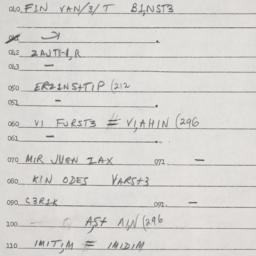 040. FIN VAN/3/T BINST3
042. ZAJTI-1,R
043 -
050 ERZINS+TIP (212
051 -
060 VI FURST3 ≠ VI,AHIN (296
061 -
070 MIR JUEN ZAX 071 -
080 KIN ODES VARS+3
090 C3R1K 091. -
100 A,S+ A1,N (296
110 IMIT,M = IMIDIM